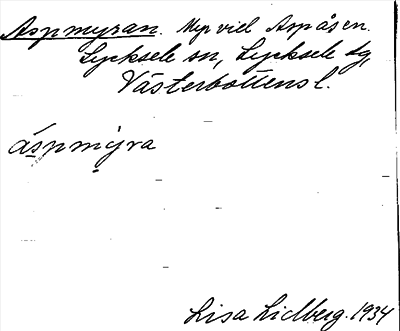 Aspmyran. Myr vid Aspåsen.
Lycksele sn, Lycksele lg,
Västerbottens l.
áspmýra
Lisa Lidberg. 1934